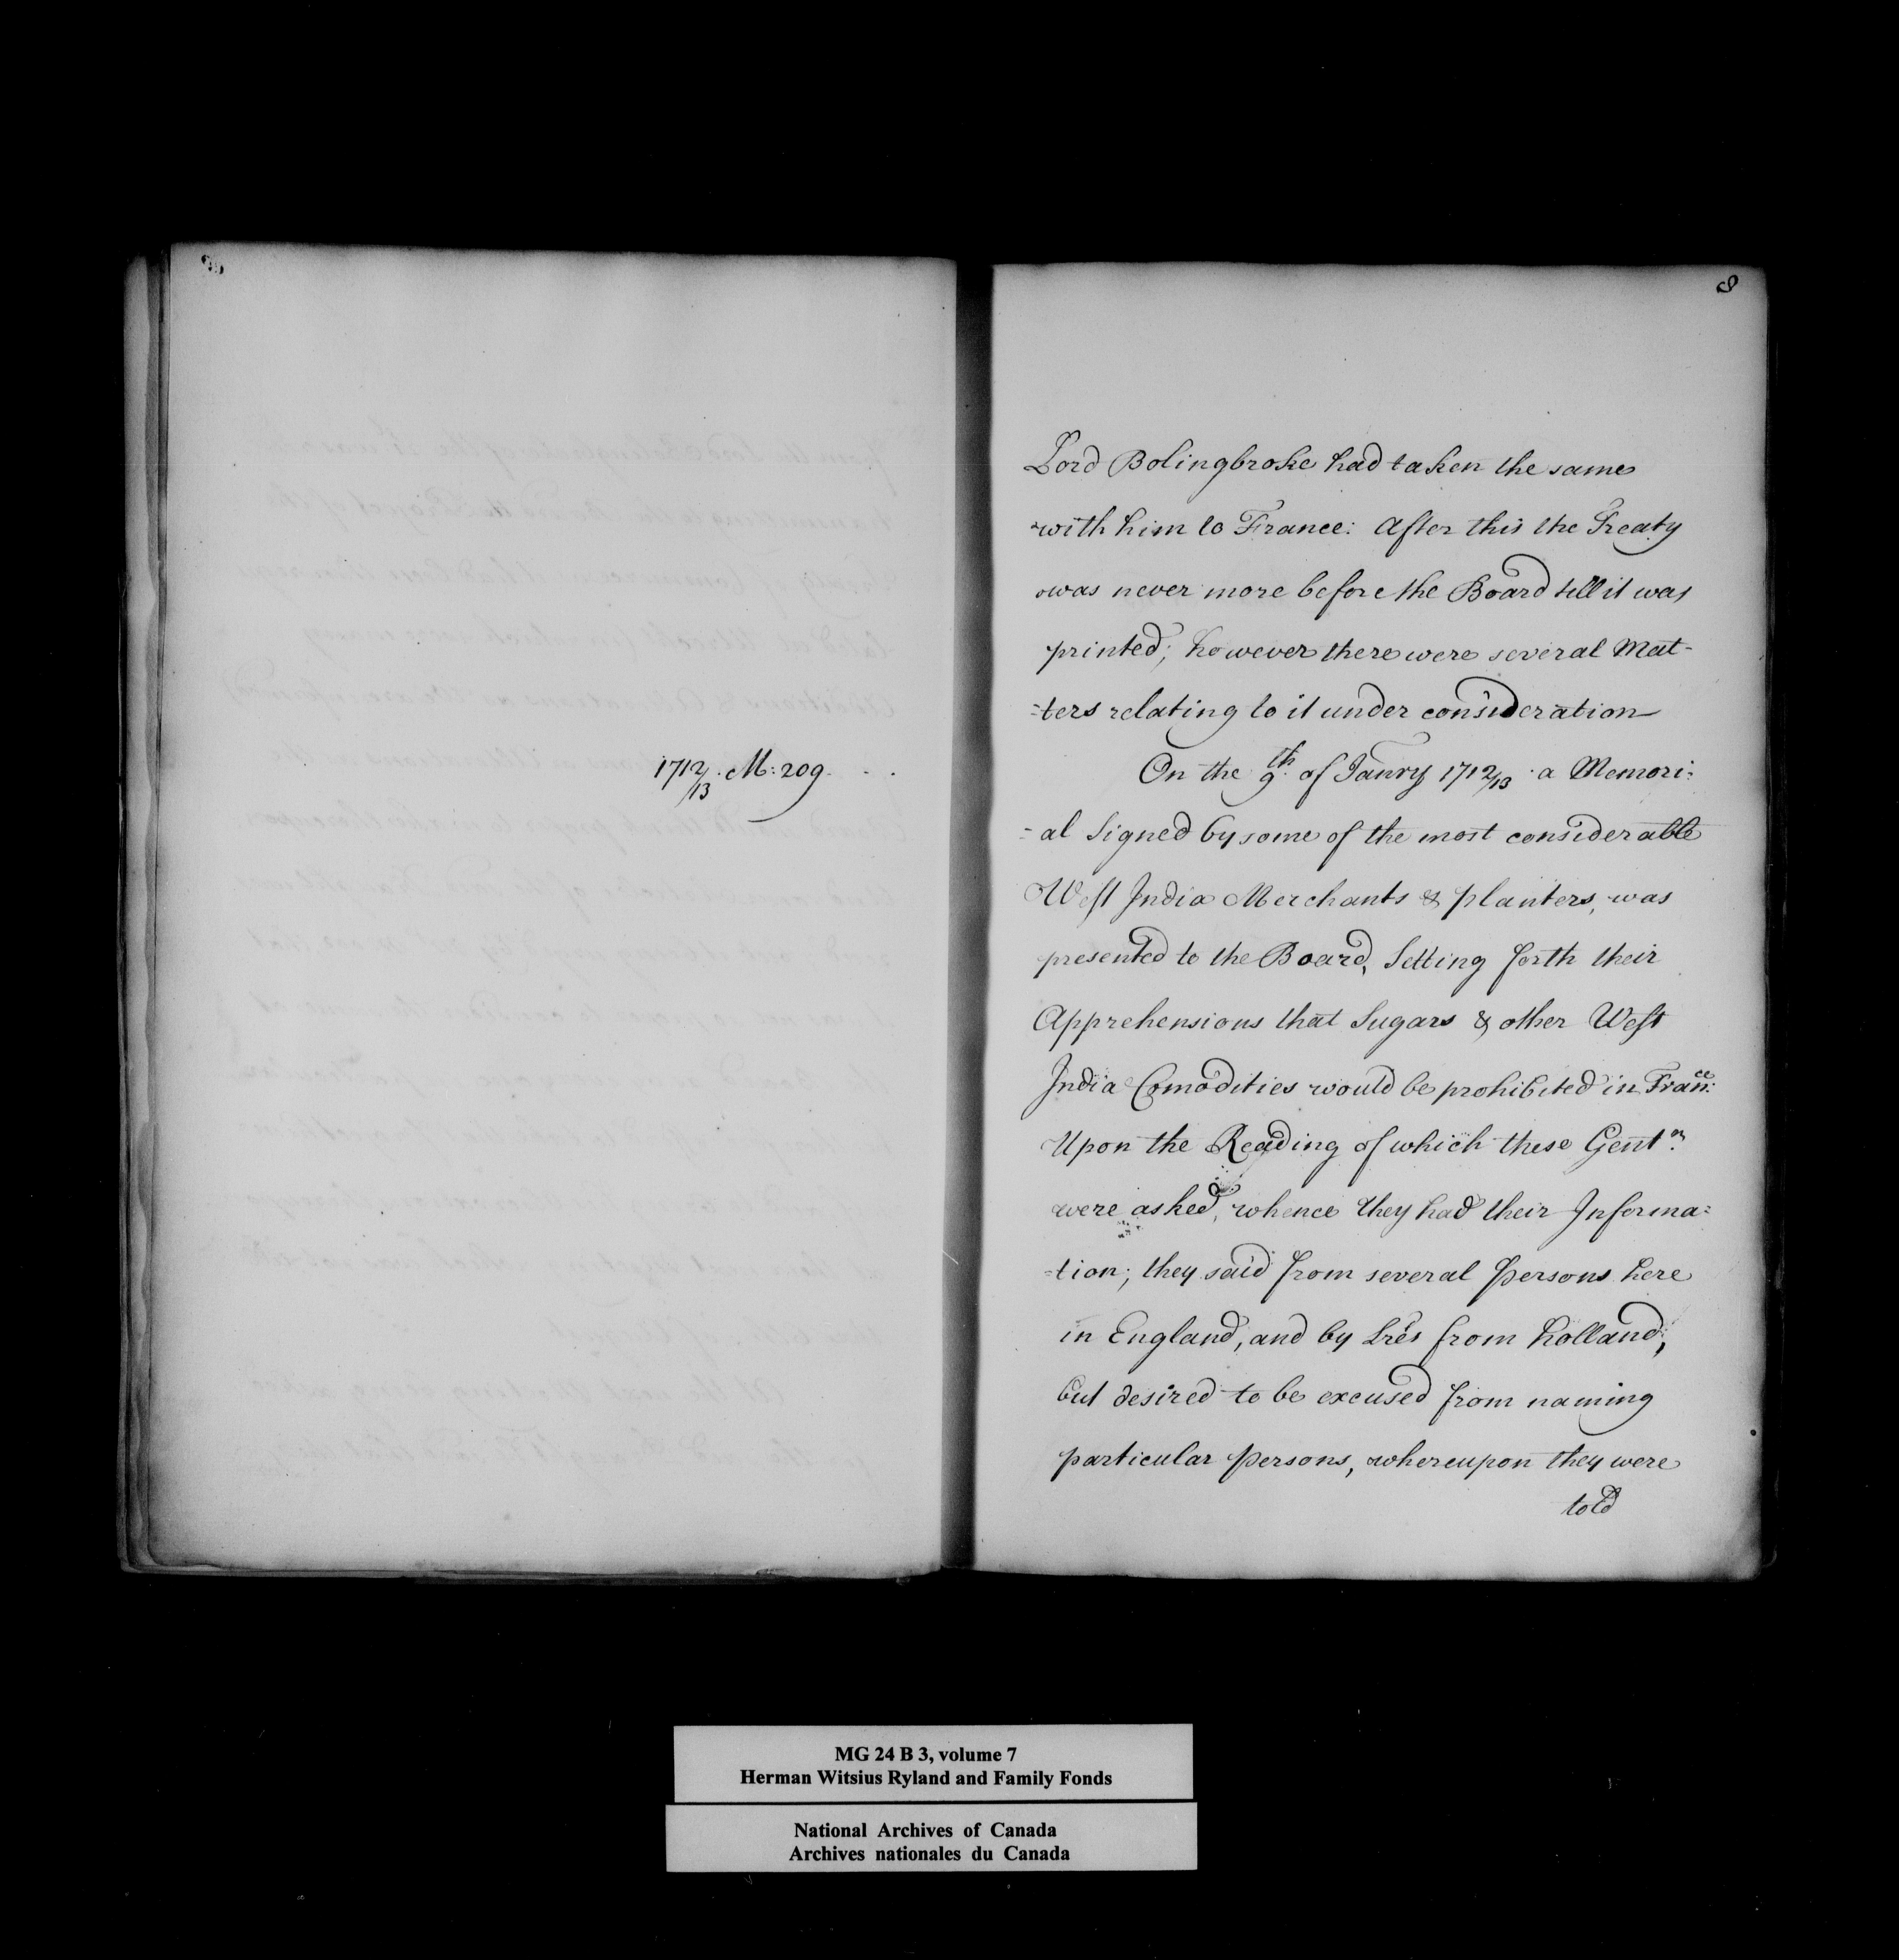 1712/13. M: 209. . .
8
Lord Bolingbroke had taken the same
with him to France: After this the Treaty
was never more before the Board till it was
printed; however there were several Mat-
=ters relating to it under consideration
On the 9th. of Janry 1712/13 a Memori=
=al Signed by some of the most considerable
West India Merchants & planters, was
presented to the Board, Setting forth their
Apprehensions that Sugars & other West
India Comodities would be prohibited in Fran:ce
Upon the Reading of which these Gentm.
were asked, whence they had their Informa=
=tion; they said from several persons here
in England, and by Lrēs from Holland,
but desired to be excused from naming
particular persons, whereupon they were
told
MG 24 B 3, volume 7
Herman Witsius Ryland and Family Fonds
National Archives of Canada
Archives nationales du Canada